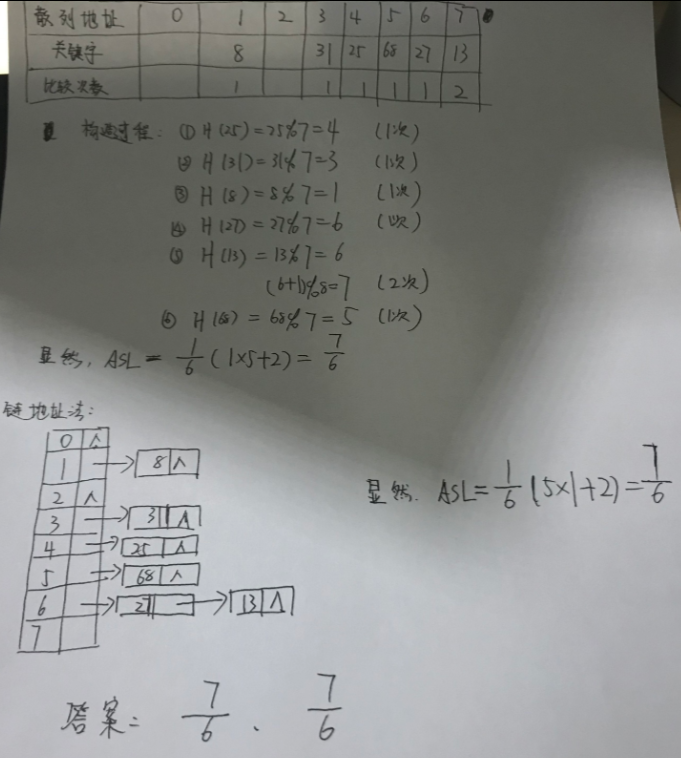 散列地址 0 1 2 3 4 5 6 7
关键字 8 31 25 68 27 13
比较次数 1 1 1 1 1 2
构造过程: ① H(25)=25%7=4 (1次)
② H(31)=31%7=3 (1次)
③ H(8)=8%7=1 (1次)
④ H(27)=27%7=6 (1次)
⑤ H(13)=13%7=6
(6+1)%8=7 (2次)
⑥ H(68)=68%7=5 (1次)
显然, ASL=1/6(1×5+2)=7/6
链地址法:
0 ∧
1 8 ∧
2 ∧
3 31 ∧
4 25 ∧
5 68 ∧
6 27 13 ∧
7
显然. ASL=1/6(5×1+2)=7/6
答案: 7/6 、 7/6